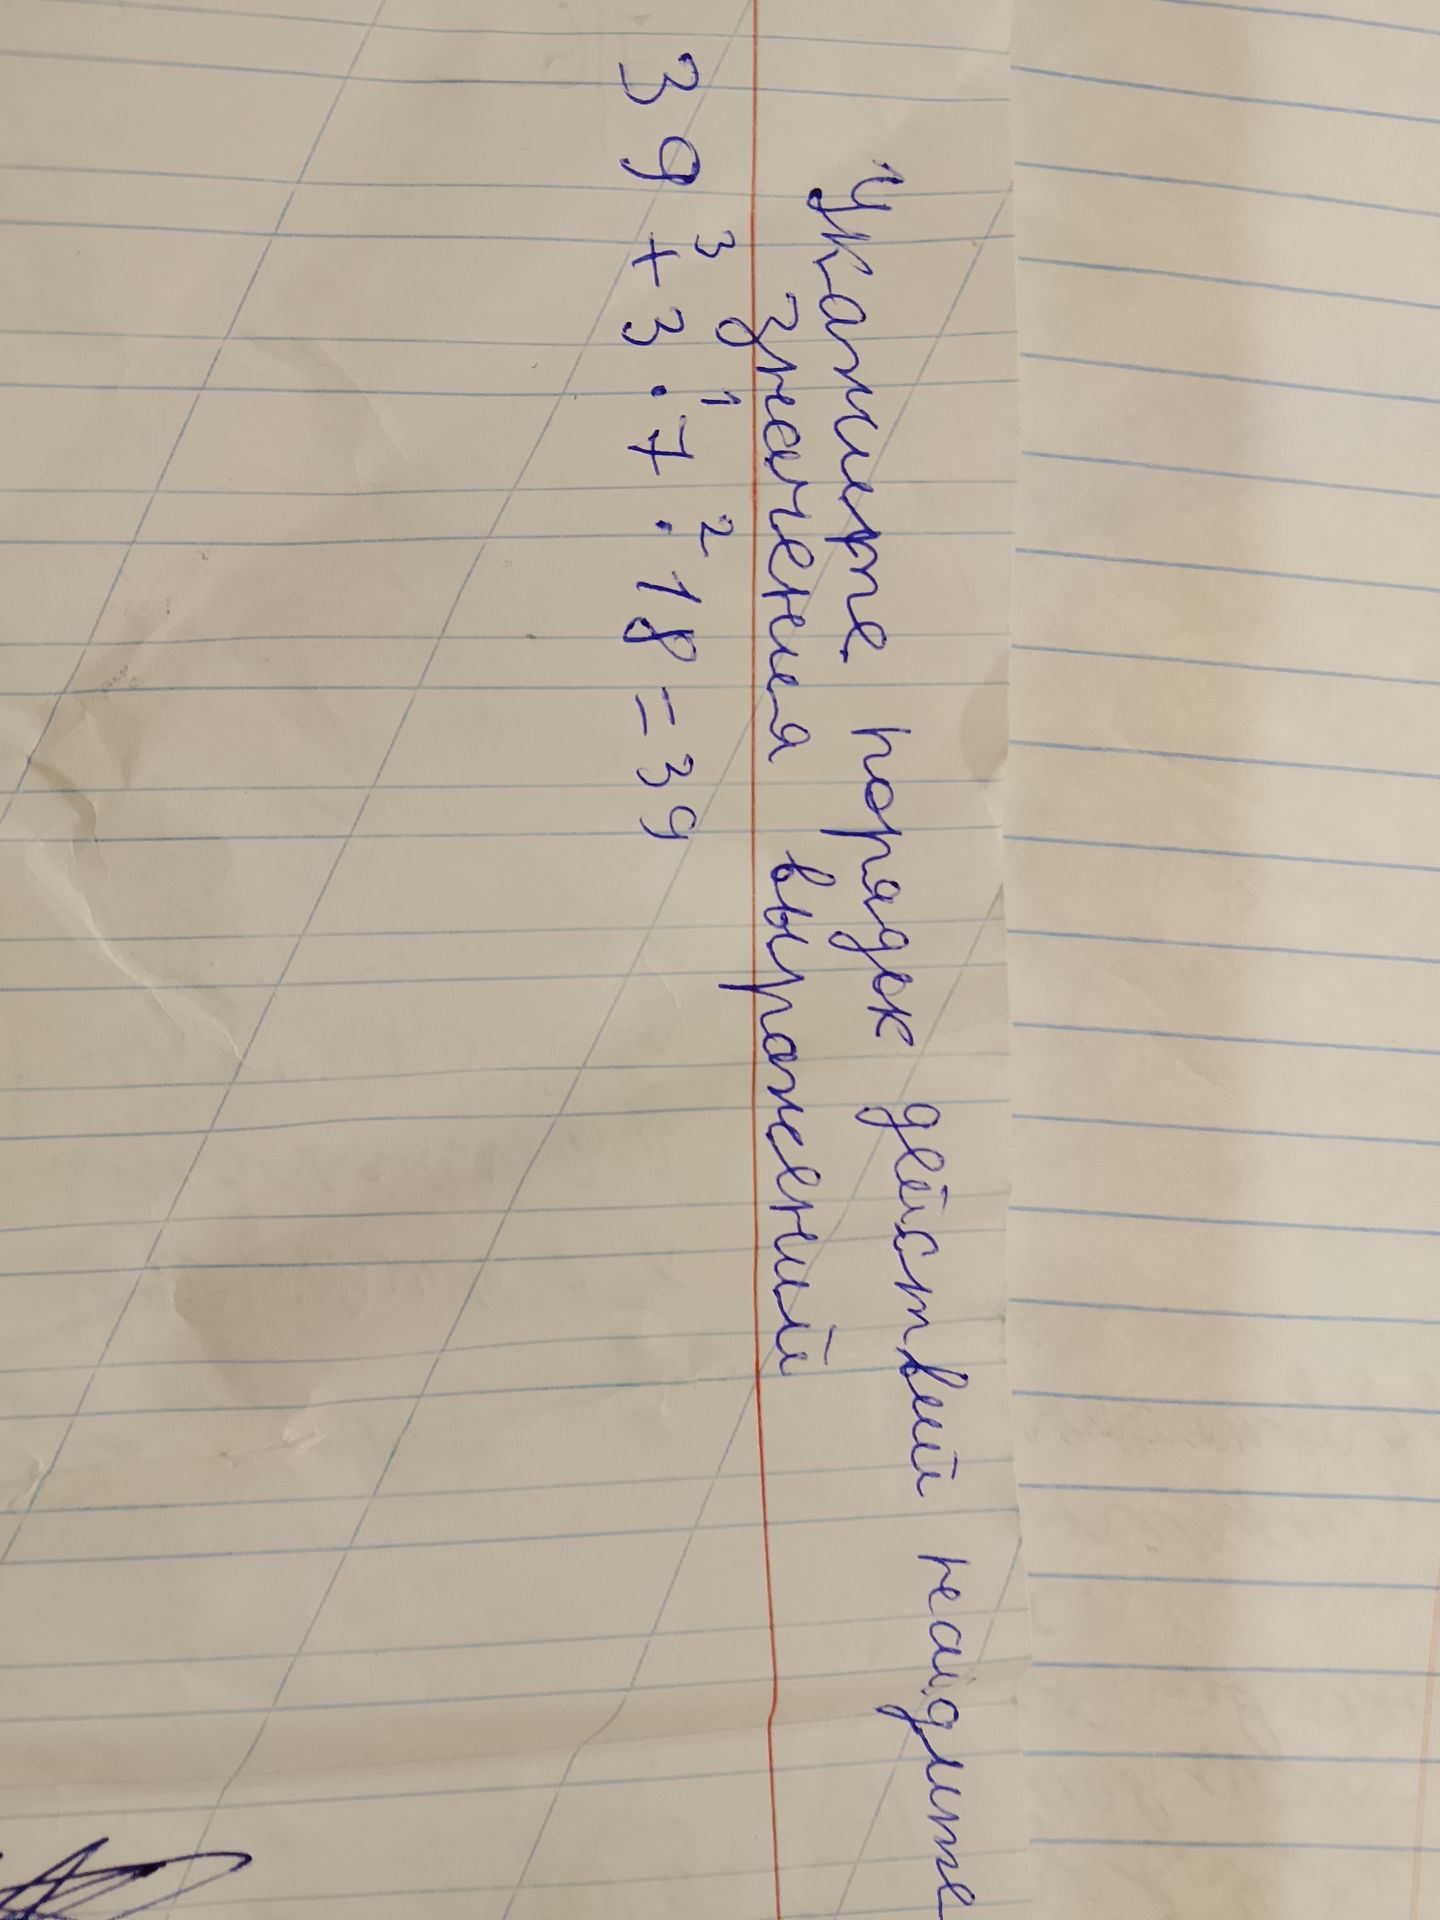 Укажите порядок действий найдите
значения выражений
3 1 2
39 + 3 · 7 · 18 = 39